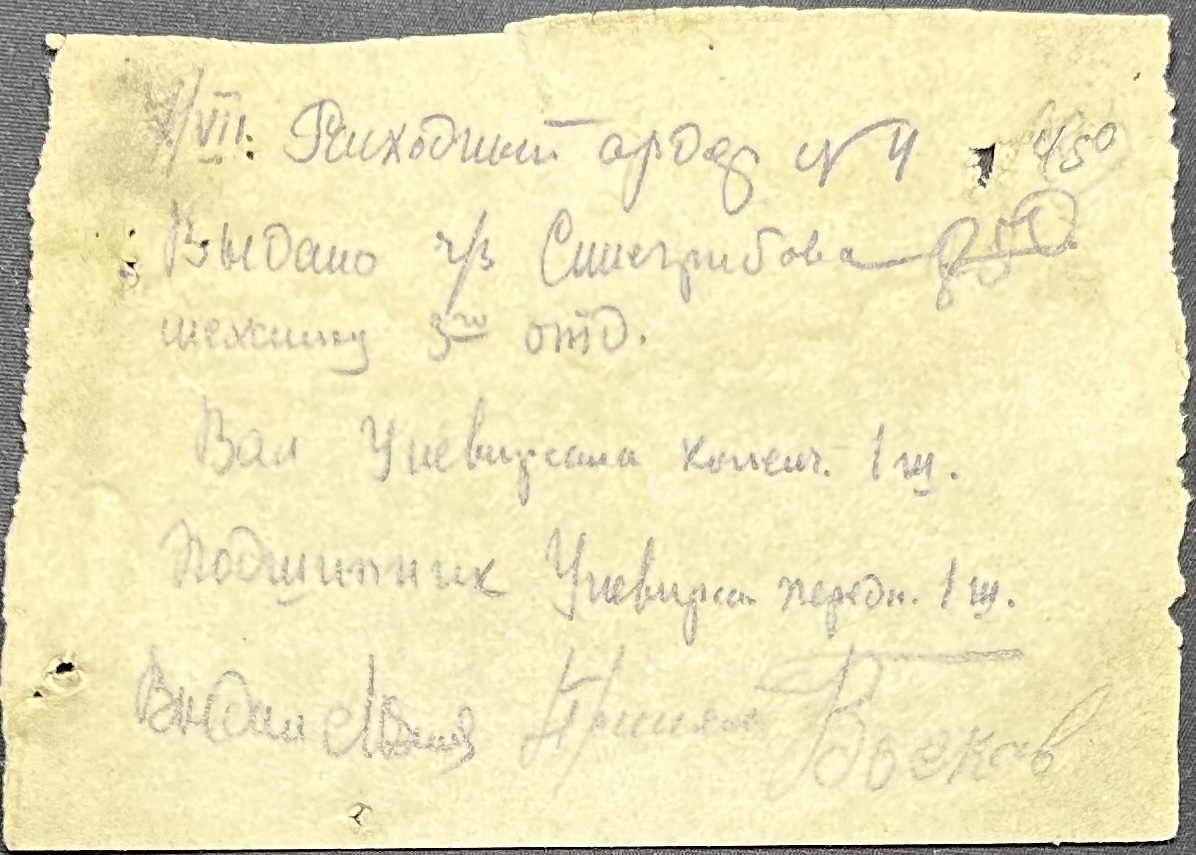 /VII. Расходный ордер № 4 450
Выдано ч/з Синегрибова
механику 3го отд.
Вал Универсала коленч. 1 ш.
Подшипник Универсал передн. 1 ш.
Выдал Принял